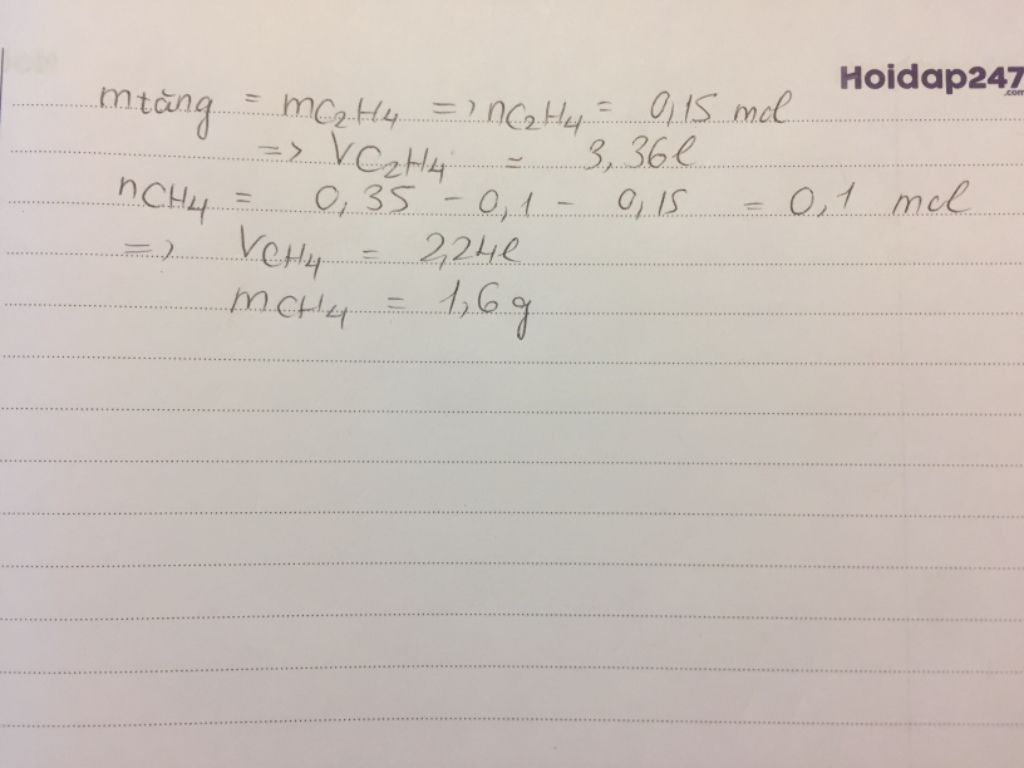 Hoidap247
.com
mtăng = mC2H4 => nC2H4 = 0,15 mol
=> VC2H4 = 3,36l
nCH4 = 0,35 - 0,1 - 0,15 = 0,1 mol
=> VCH4 = 2,24l
mCH4 = 1,6g